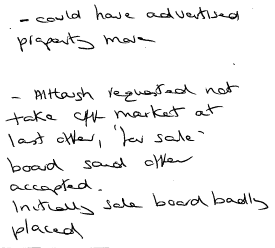 - could have advertised
property more
- Although requested not
take off market at
last offer, 'for sale'
board said offer
accepted.
Initially sale board badly
placed